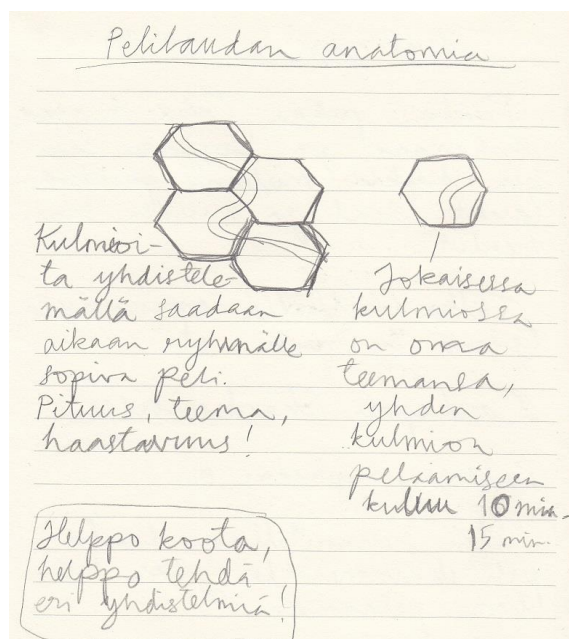 Pelilaudan anatomia
Kulmioi-
ta yhdistele-
mällä saadaan
aikaan ryhmälle
sopiva peli.
Pituus, teema,
haastavuus!
Jokaisessa
kulmiossa
on oma
teemansa,
yhden
kulmion
pelaamiseen
kuluu 10 min-
15 min.
Helppo koota,
helppo tehdä
eri yhdistelmiä!